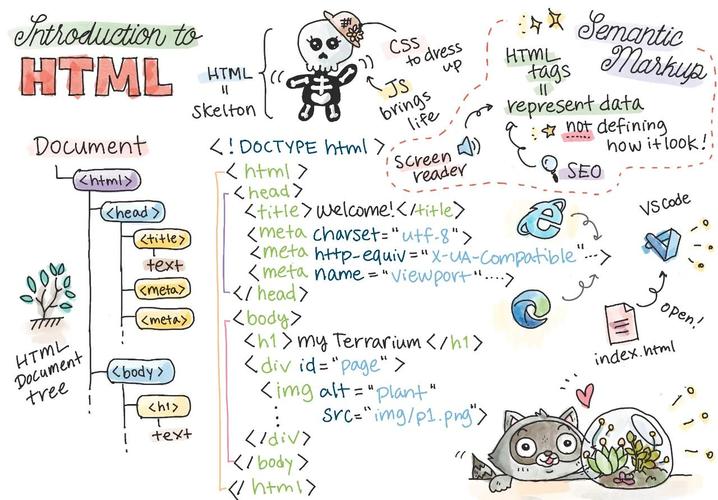 Introduction to
HTML
HTML
=
Skelton
CSS
to dress
up
JS
brings
life
Semantic
Markup
HTML
tags
=
represent data
not defining
how it look!
Screen
reader
SEO
Document
<html>
<head>
<title>
text
<meta>
<meta>
<body>
<h1>
text
HTML
Document
tree
<! DOCTYPE html >
< html >
< head >
<title> Welcome! </title>
<meta charset="utf-8">
<meta http-equiv="X-UA-Compatible"...>
<meta name="viewport"....>
</head>
<body>
<h1> my Terrarium </h1>
<div id="page" >
<img alt="plant"
src="img/p1.png">
</div>
</ body>
</ html>
VScode
open!
index.html